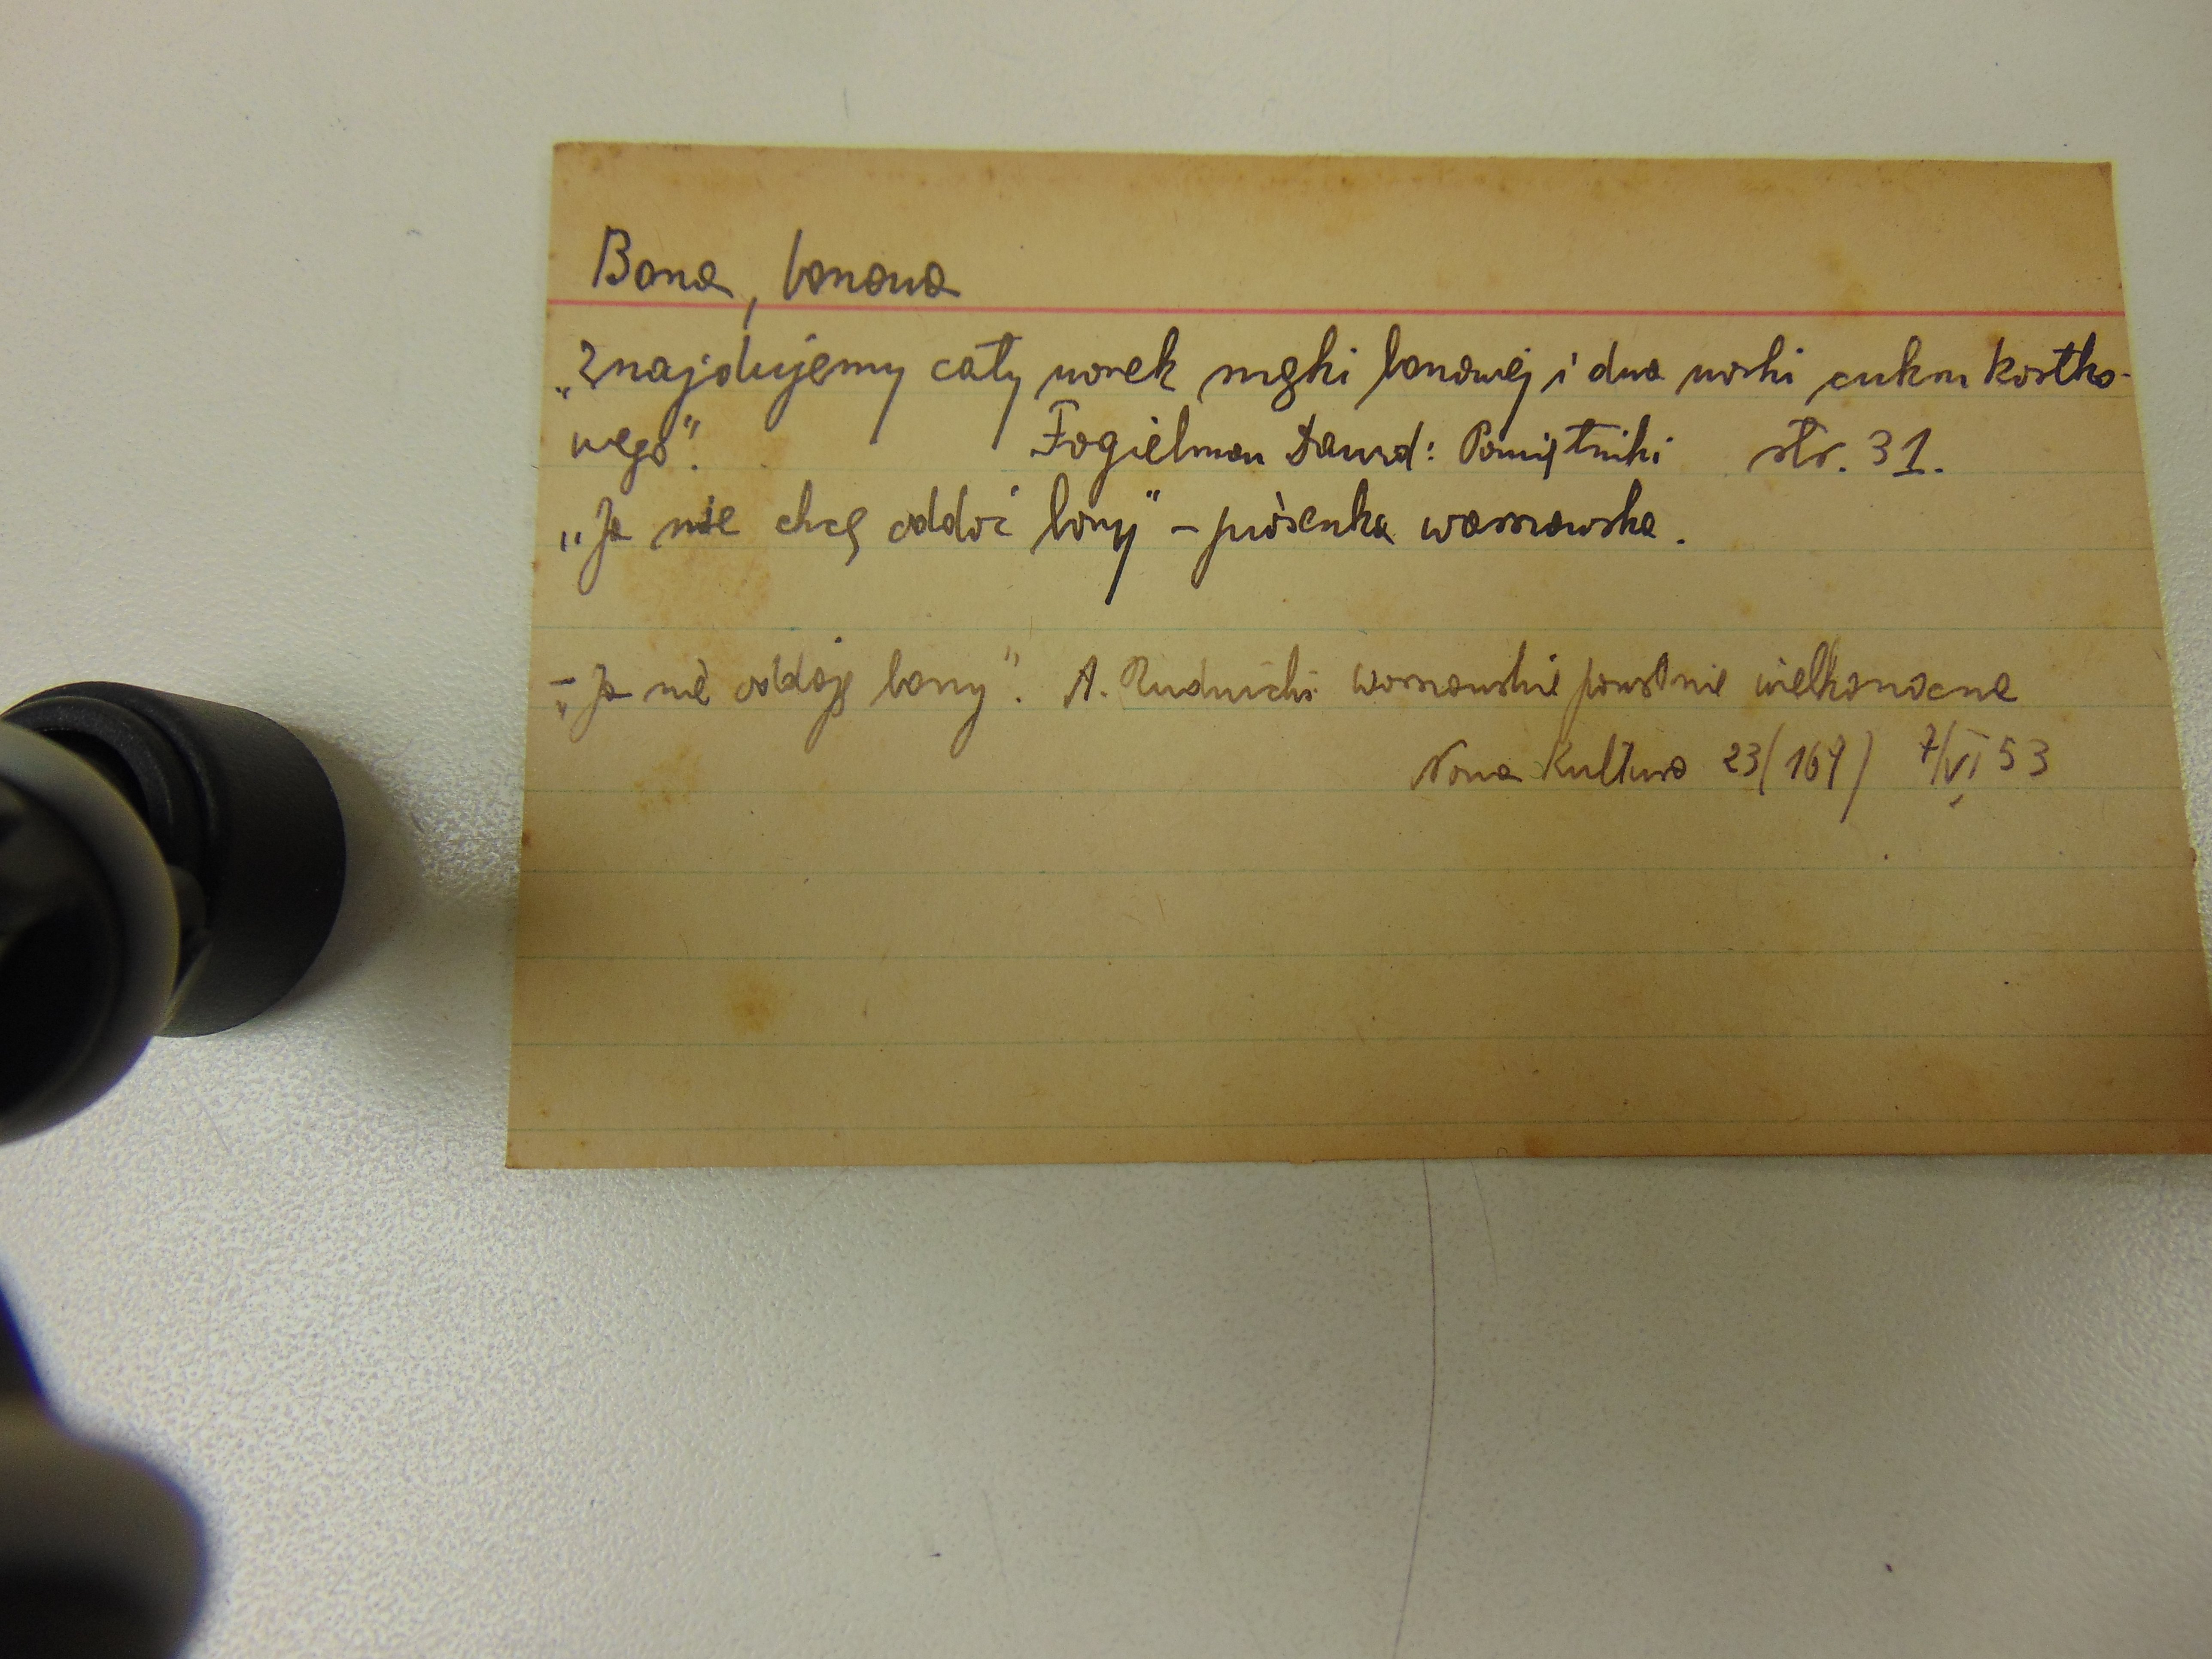 Bona, bonowa
„Znajdujemy cały worek mąki bonowej i dwa worki cukru kostko-
wego". Fogielman Dawid: Pamiętniki str. 31.
„Ja nie chcę oddać bony" – piosenka warszawska.
– „Ja nie oddaję bony". A. Rudnicki Warszawskie powstanie wielkanocne
Nowa Kultura 23(167) 7/VI 53